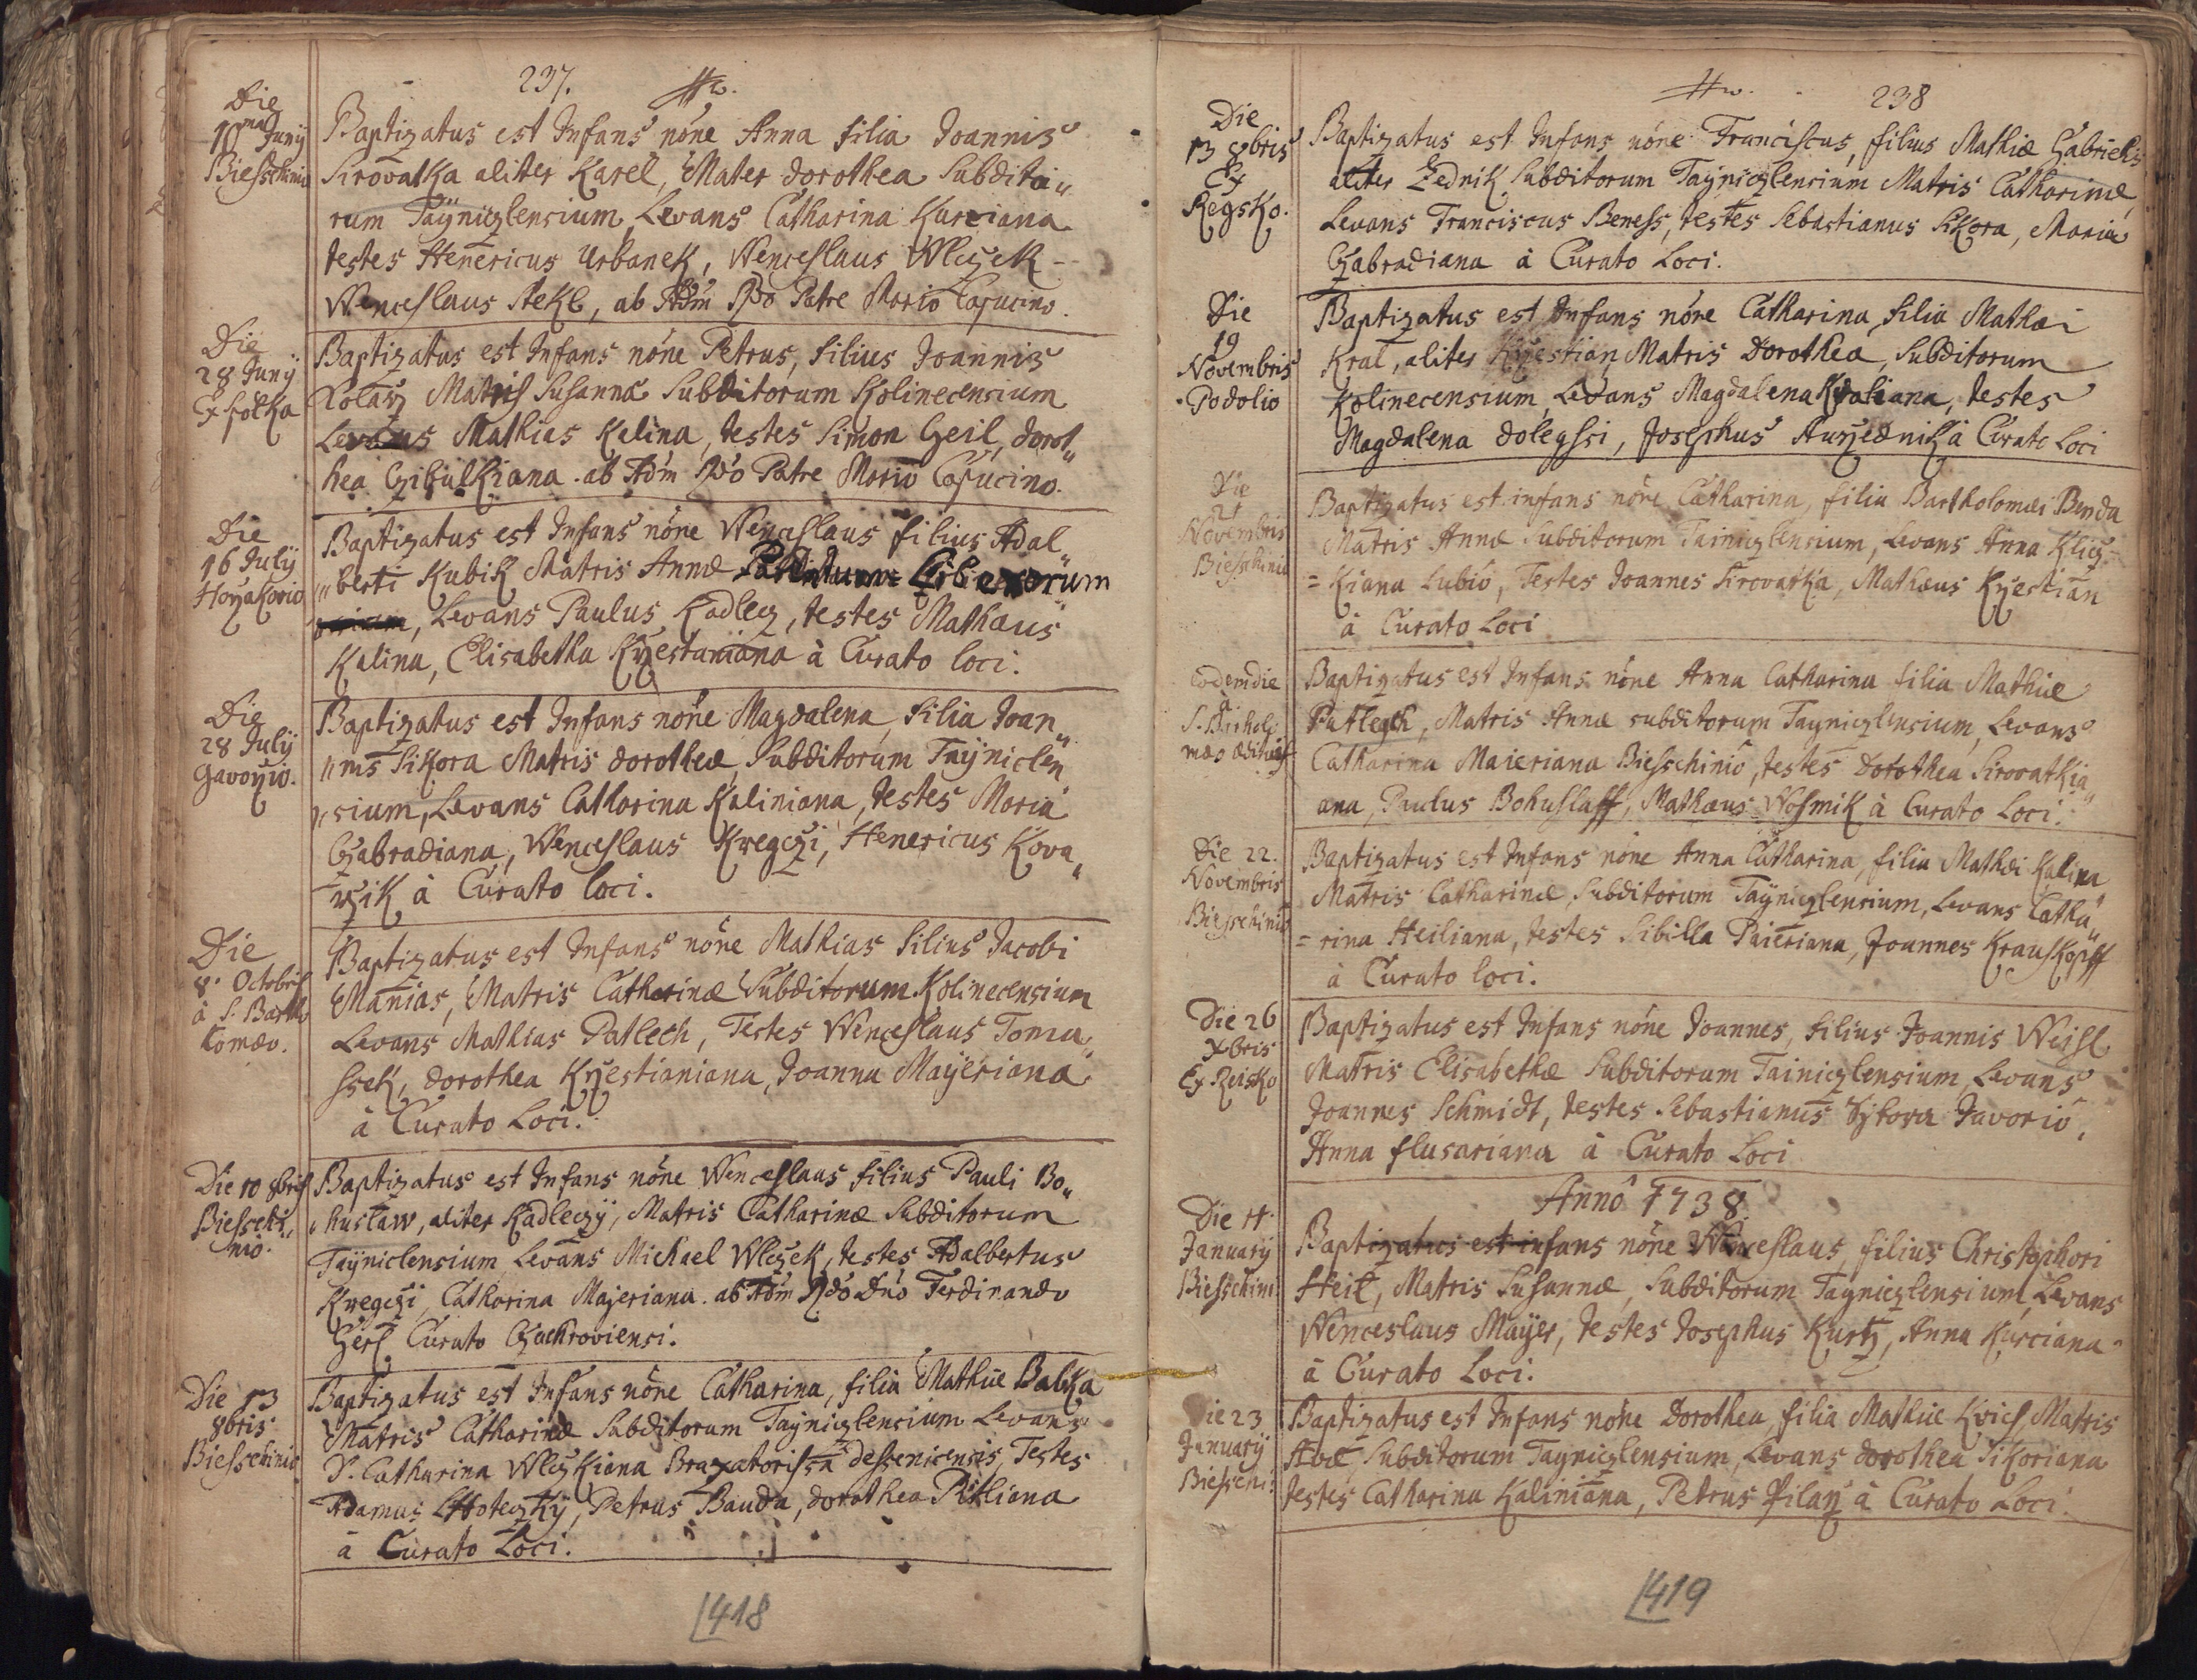 237.
Die
10ma Juny
Biesschinio
Baptizatus est Infans nõne Anna filia Joannis
Sirovatka aliter Karel, Mater dorothea Subdito„
rum Taÿniczlensium, Levans Catharina Kurziana
testes Henericus Urbanek, Wenceslaus Wlczek
Wenceslaus Stekl, ab Adm Rdo Patre Mario Capucino.
Die
28 Juny
Ex folka
Baptizatus est Infans nõne Petrus, filius Joannis
Kolarz Matris Susannæ Subditorum Kolinecensium
Levans Mathias Kalina, testes Simon Geil, dorot„
hea Czibulkiana. ab Adm Rdo Patre Mario Capucino.
Die
16 July
Baptizatus est Infans nõne Wenceslaus filius Adal„
„berti Kubik Matris Annæ Liberorum
, Levans Paulus Kadlecz, testes Mathæus
Kalina, Elisabetha à Curato loci.
Die
28 July
Baptizatus est Infans nõne Magdalena, filia Joan„
„nis Sikora Matris dorotheæ, Subditorum Taÿniclen„
„sium, Levans Catharina Kaliniana, testes Maria
Czabradiana, Wenceslaus Kregczi, Henericus Kova„
rzik à Curato loci.
Die
8. Octobris
à S. Bartho
lomæo.
Baptizatus est Infans nõne Mathias filius Jacobi
Manias, Matris Catharinæ Subditorum Kolinecensium
Levans Mathias Patlech, Testes Wenceslaus Toma„
ssek, dorothea Krzestianiana, Joanna Maÿeriana
à Curato Loci.
Die 10 8bris
Biesschi„
nio.
Baptizatus est Infans nõne Wenceslaus filius Pauli Bo„
„huslaw, aliter Kadleczÿ, Matris Catharinæ Subditorum
Taÿniclensium Levans Michael Wlczek, testes Adalbertus
Kregczi, Catharina Majeriana. ab Adm Rdo Dno Ferdinando
Gerl Curato Czachroviensi.
Die 13
8bris
Biesschinio
Baptizatus est Infans nõne Catharina, filia Mathiæ Balka
Matris Catharinæ Subditorum Taÿniczlensium Levans
D. Catharina Wlczkiana Braxatorissa dessenicensis, Testes
Adamus Lhoteczkÿ, Petrus Bauda, dorothea Pitliana
à Curato Loci.
418
238
Die
13 8bris
Ex
Regsko.
Baptizatus est Infans nõne Franciscus, filius Mathiæ Gabriels
aliter Zednik, Subditorum Taÿniczlensium Matris Catharinæ,
Levans Franciscus Beness, testes Sebastianus Sikora, Maria
Czabradiana à Curato Loci.
Die
19
Novembris
Podolio
Baptizatus est Infans nõne Catharina, filia Mathæi
Kral, aliter Krzestian, Matris Dorothea, Subditorum
Kolinecensium, Levans Magdalena Kraliana, testes
Magdalena dolegssi, Josephus Aurzednik à Curato Loci
Die
21
Novembris
Biesschinio
Baptizatus est infans nõne Catharina, filia Bartholomæi Benda
Matris Annæ Subditorum Tainiczlensium, Levans Anna Klicz„
=kiana Lubio, Testes Joannes Sirovatka, Mathæus Krzestian
à Curato Loci
Eodem die
à
Baptizatus est Infans nõne Anna Catharina filia Mathiæ
Patlegch, Matris Annæ subditorum Tayniczlensium, Levans
Catharina Maieriana Biesschinio, testes Dorothea Sirovatkia„
ana, Paulus Bohuslaff, Mathæus Wosmik à Curato Loci.
Die 22.
Novembris
Biesschinio
Baptizatus est Infans nõne Anna Catharina, filia Mathæi Kalina
Matris Catharinæ, Subditorum Taÿniczlensium, Levans Catha„
=rina Heiliana, testes Sibilla Paieriana, Joannes Krauskopff
à Curato loci.
Die 26
Xbris
Ex Reisko
Baptizatus est Infans nõne Joannes, filius Joannis Weisl
Matris Elisabethæ Subditorum Tainiczlensium, Levans
Joannes Schmidt, testes Sebastianus Javorio,
Anna flusariana à Curato Loci
Anno 1738.
Die 11.
January
Biesschini
Baptizatus est infans nõne Wenceslaus, filius Christophori
Heil, Matris Susannæ, Subditorum Tayniczlensium, Levans
Wenceslaus Maÿer, testes Josephus Kurtz, Anna Kurciana
à Curato Loci.
Die 23
January
Biesschi:
Baptizatus est Infans nõne Dorothea, filia Mathiæ Kvich, Matris
Evæ, Subditorum Tayniczlensium, Levans dorothea Sikoriana
testes Catharina Kaliniana, Petrus Pilarz à Curato Loci.
419